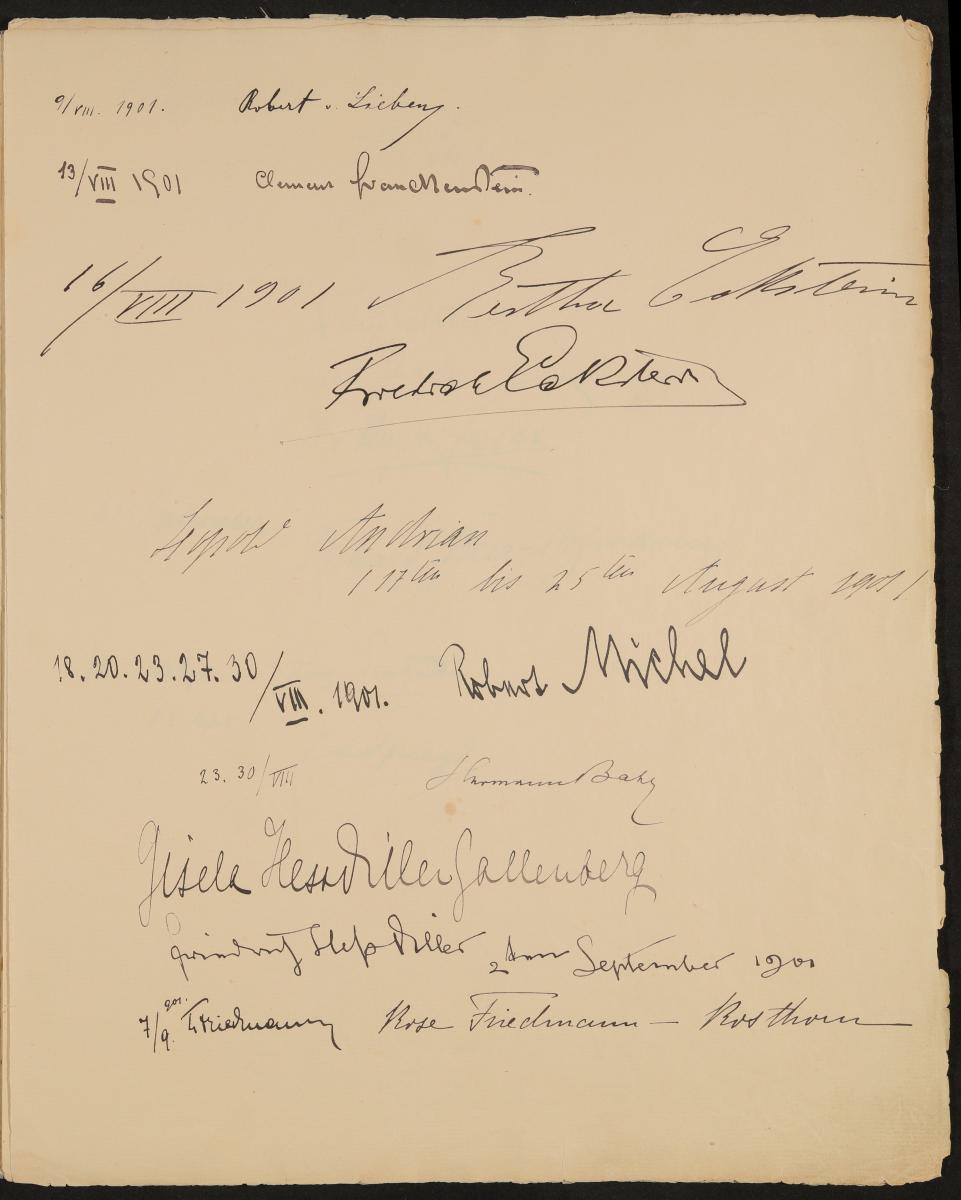 9/VIII. 1901. Robert v. Lieben.
13/VIII 1901 Clemens Franckenstein.
16/VIII 1901 Bertha Eckstein
Friedrich Eckstein
Leopold Andrian
17ten bis 25ten August 1901
18. 20. 23. 27. 30/VIII. 1901. Robert Michel
23. 30/VIII Hermann Bahr
Gisela Hess Diller Gallenberg
Friedrich Heß Diller 2ten September 1901
7/9. 901. Friedmann Rose Friedmann — Rosthorn